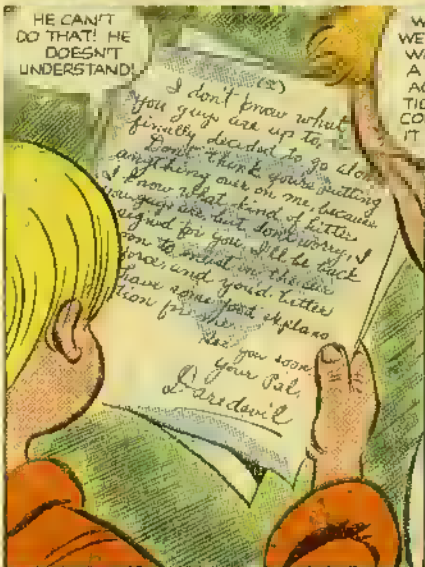 HE CAN'T
DO THAT! HE
DOESN'T
UNDERSTAND!
(2)
I don't know what
you guys are up to,
finally decided to go alon
Don't think you're putting
anything over on me because
I know what kind of
you guys are but don't worry, I
signed for you. I'll be back
soon to enlist in the air
force, and you'd better
have some good explana
tion for me.
See you soon,
your Pal,
Daredevil
W
WE
W
A
A
TI
CO
IT